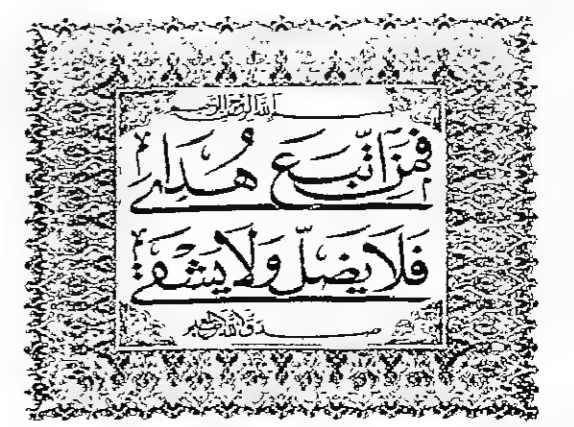 بسم الله الرحمن الرحيم
فمن اتّبع هُداي
فلا يضلّ ولا يشقى
صدق الله العظيم